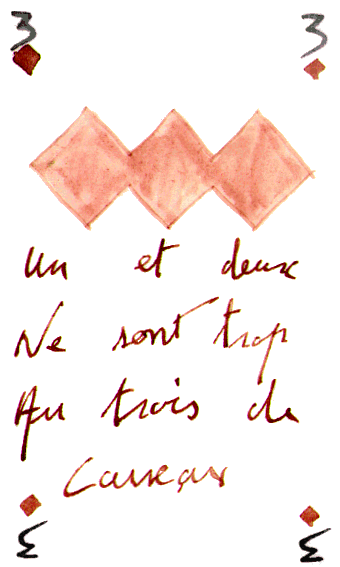 3 3
Un et deux
Ne sont trop
Au trois de
Carreau
3 3